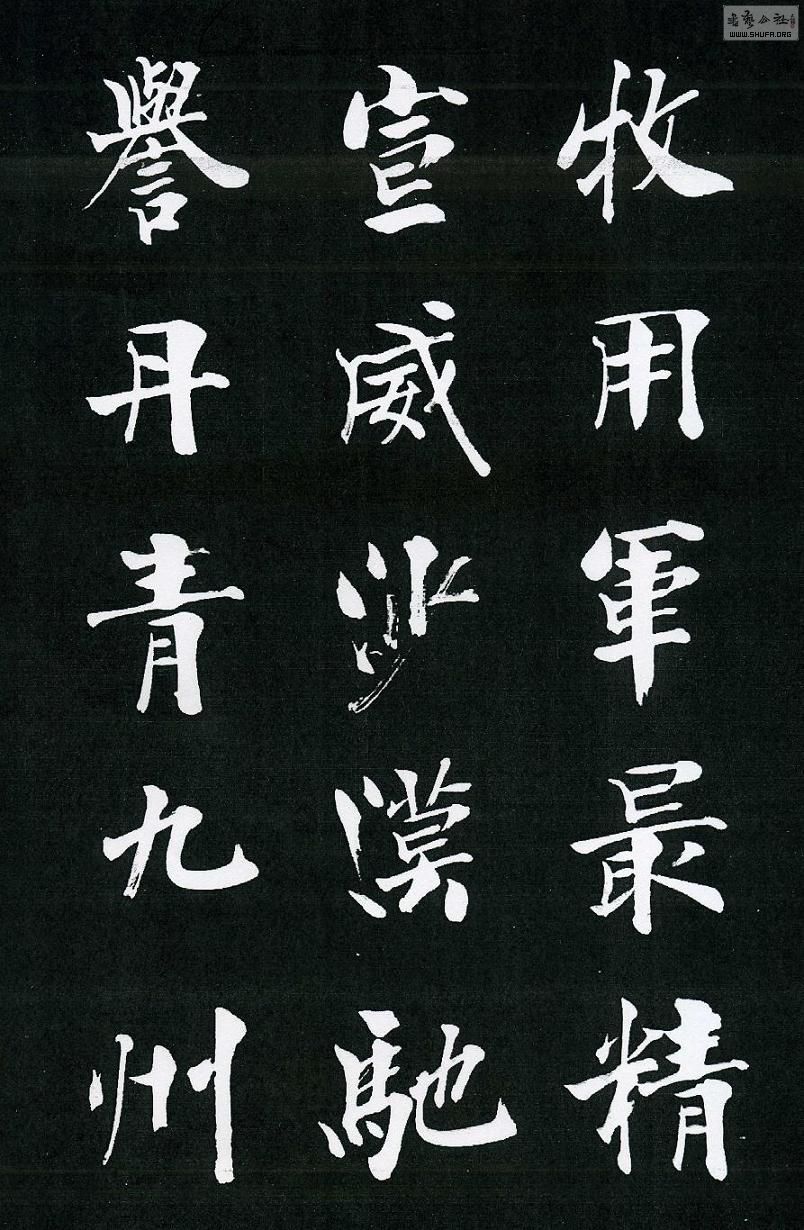 牧用軍最精
宣威沙漠馳
譽丹青九州
WWW.SHUFA.ORG